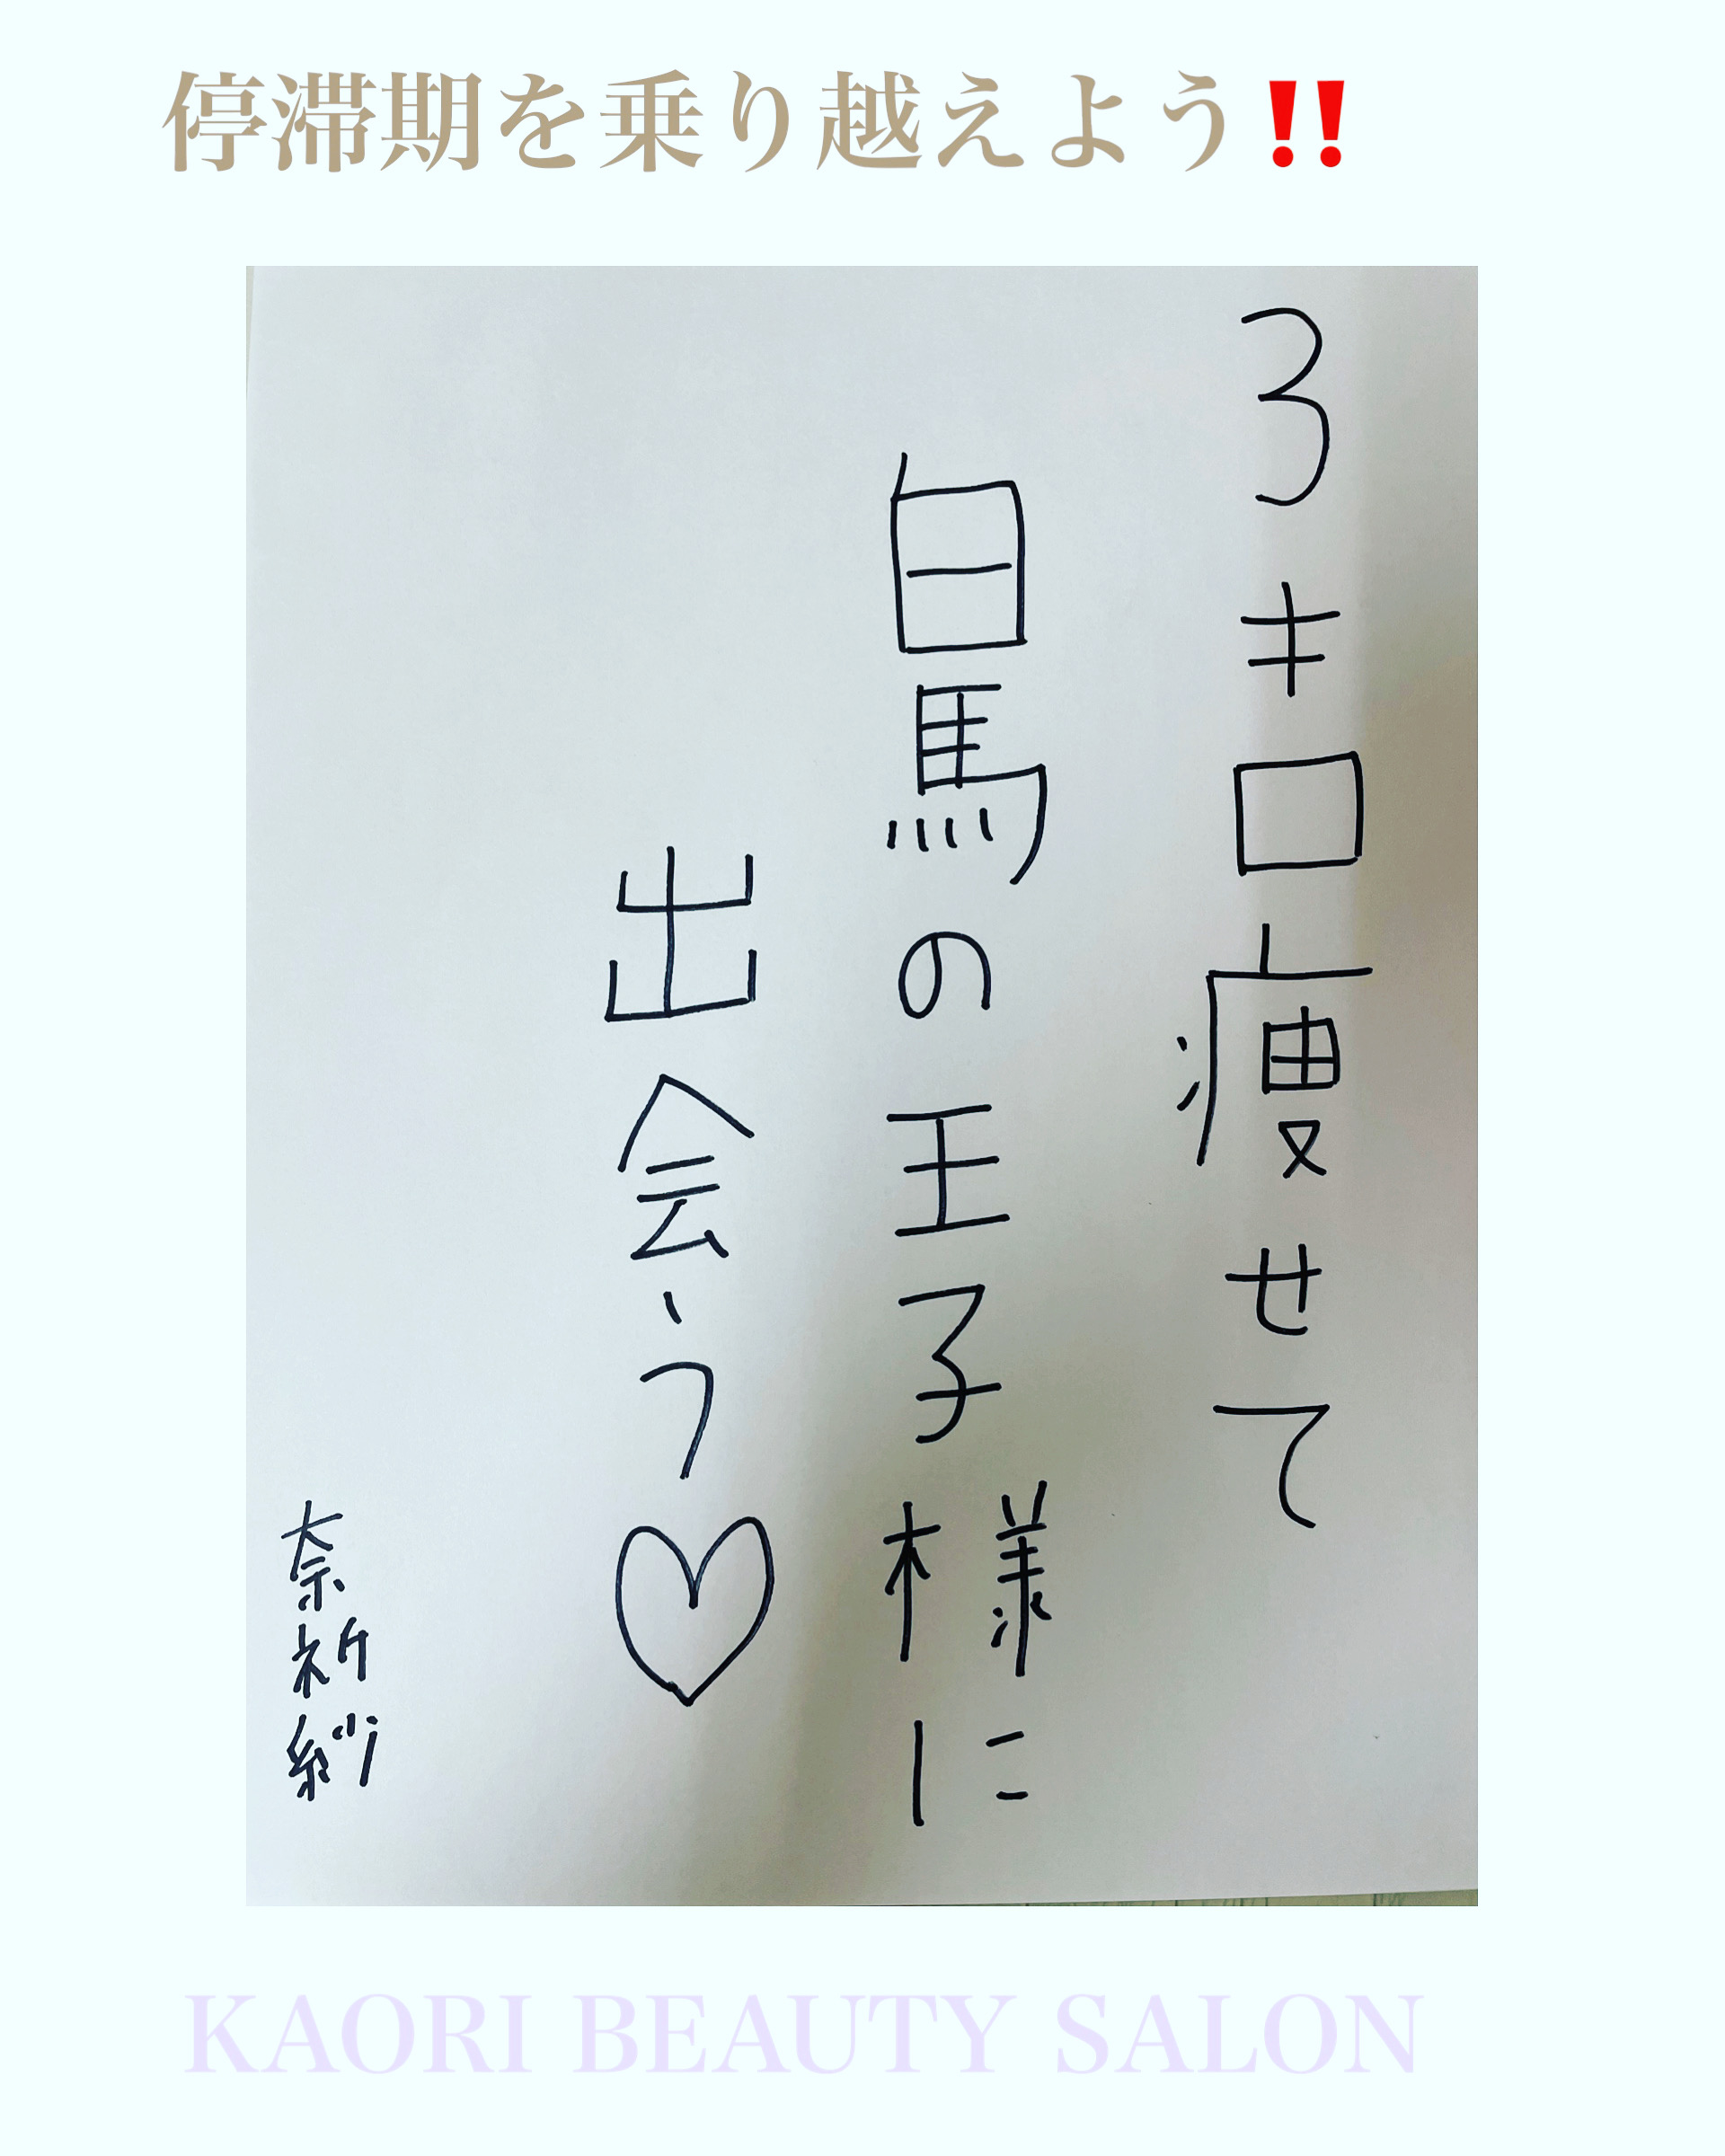 停滞期を乗り越えよう‼️
3キロ痩せて
白馬の王子様に
出会う♡
奈祈紗
KAORI BEAUTY SALON